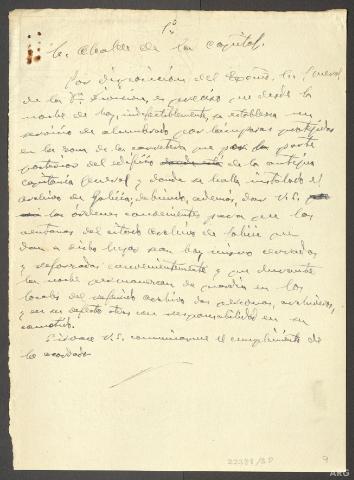 1º
Sr. Alcalde de la Capital.
Por disposición del Excmo. Sr. General
de la 8ª División, es preciso que desde la
noche de hoy, indefectiblemente, se establezca un
servicio de alumbrado por lámparas protegidas
en la zona de la carretera que por la parte
posterior del edificio de la antigua
Capitanía General y donde se halla instalado el
archivo de Galicia, debiendo, además, dar V.S.
las órdenes convenientes para que las
ventanas del citado archivo de Galicia que
dan a dicho lugar sean hoy mismo cerradas
y reforzadas convenientemente y que durante
la noche permanezcan de guardia en los
locales del referido archivo dos personas, archiveros,
y en su defecto otras con responsabilidad en su
cometido.
Sírvase V.S. comunicarme el cumplimiento de
lo acordado.
22388/80
9
ARG